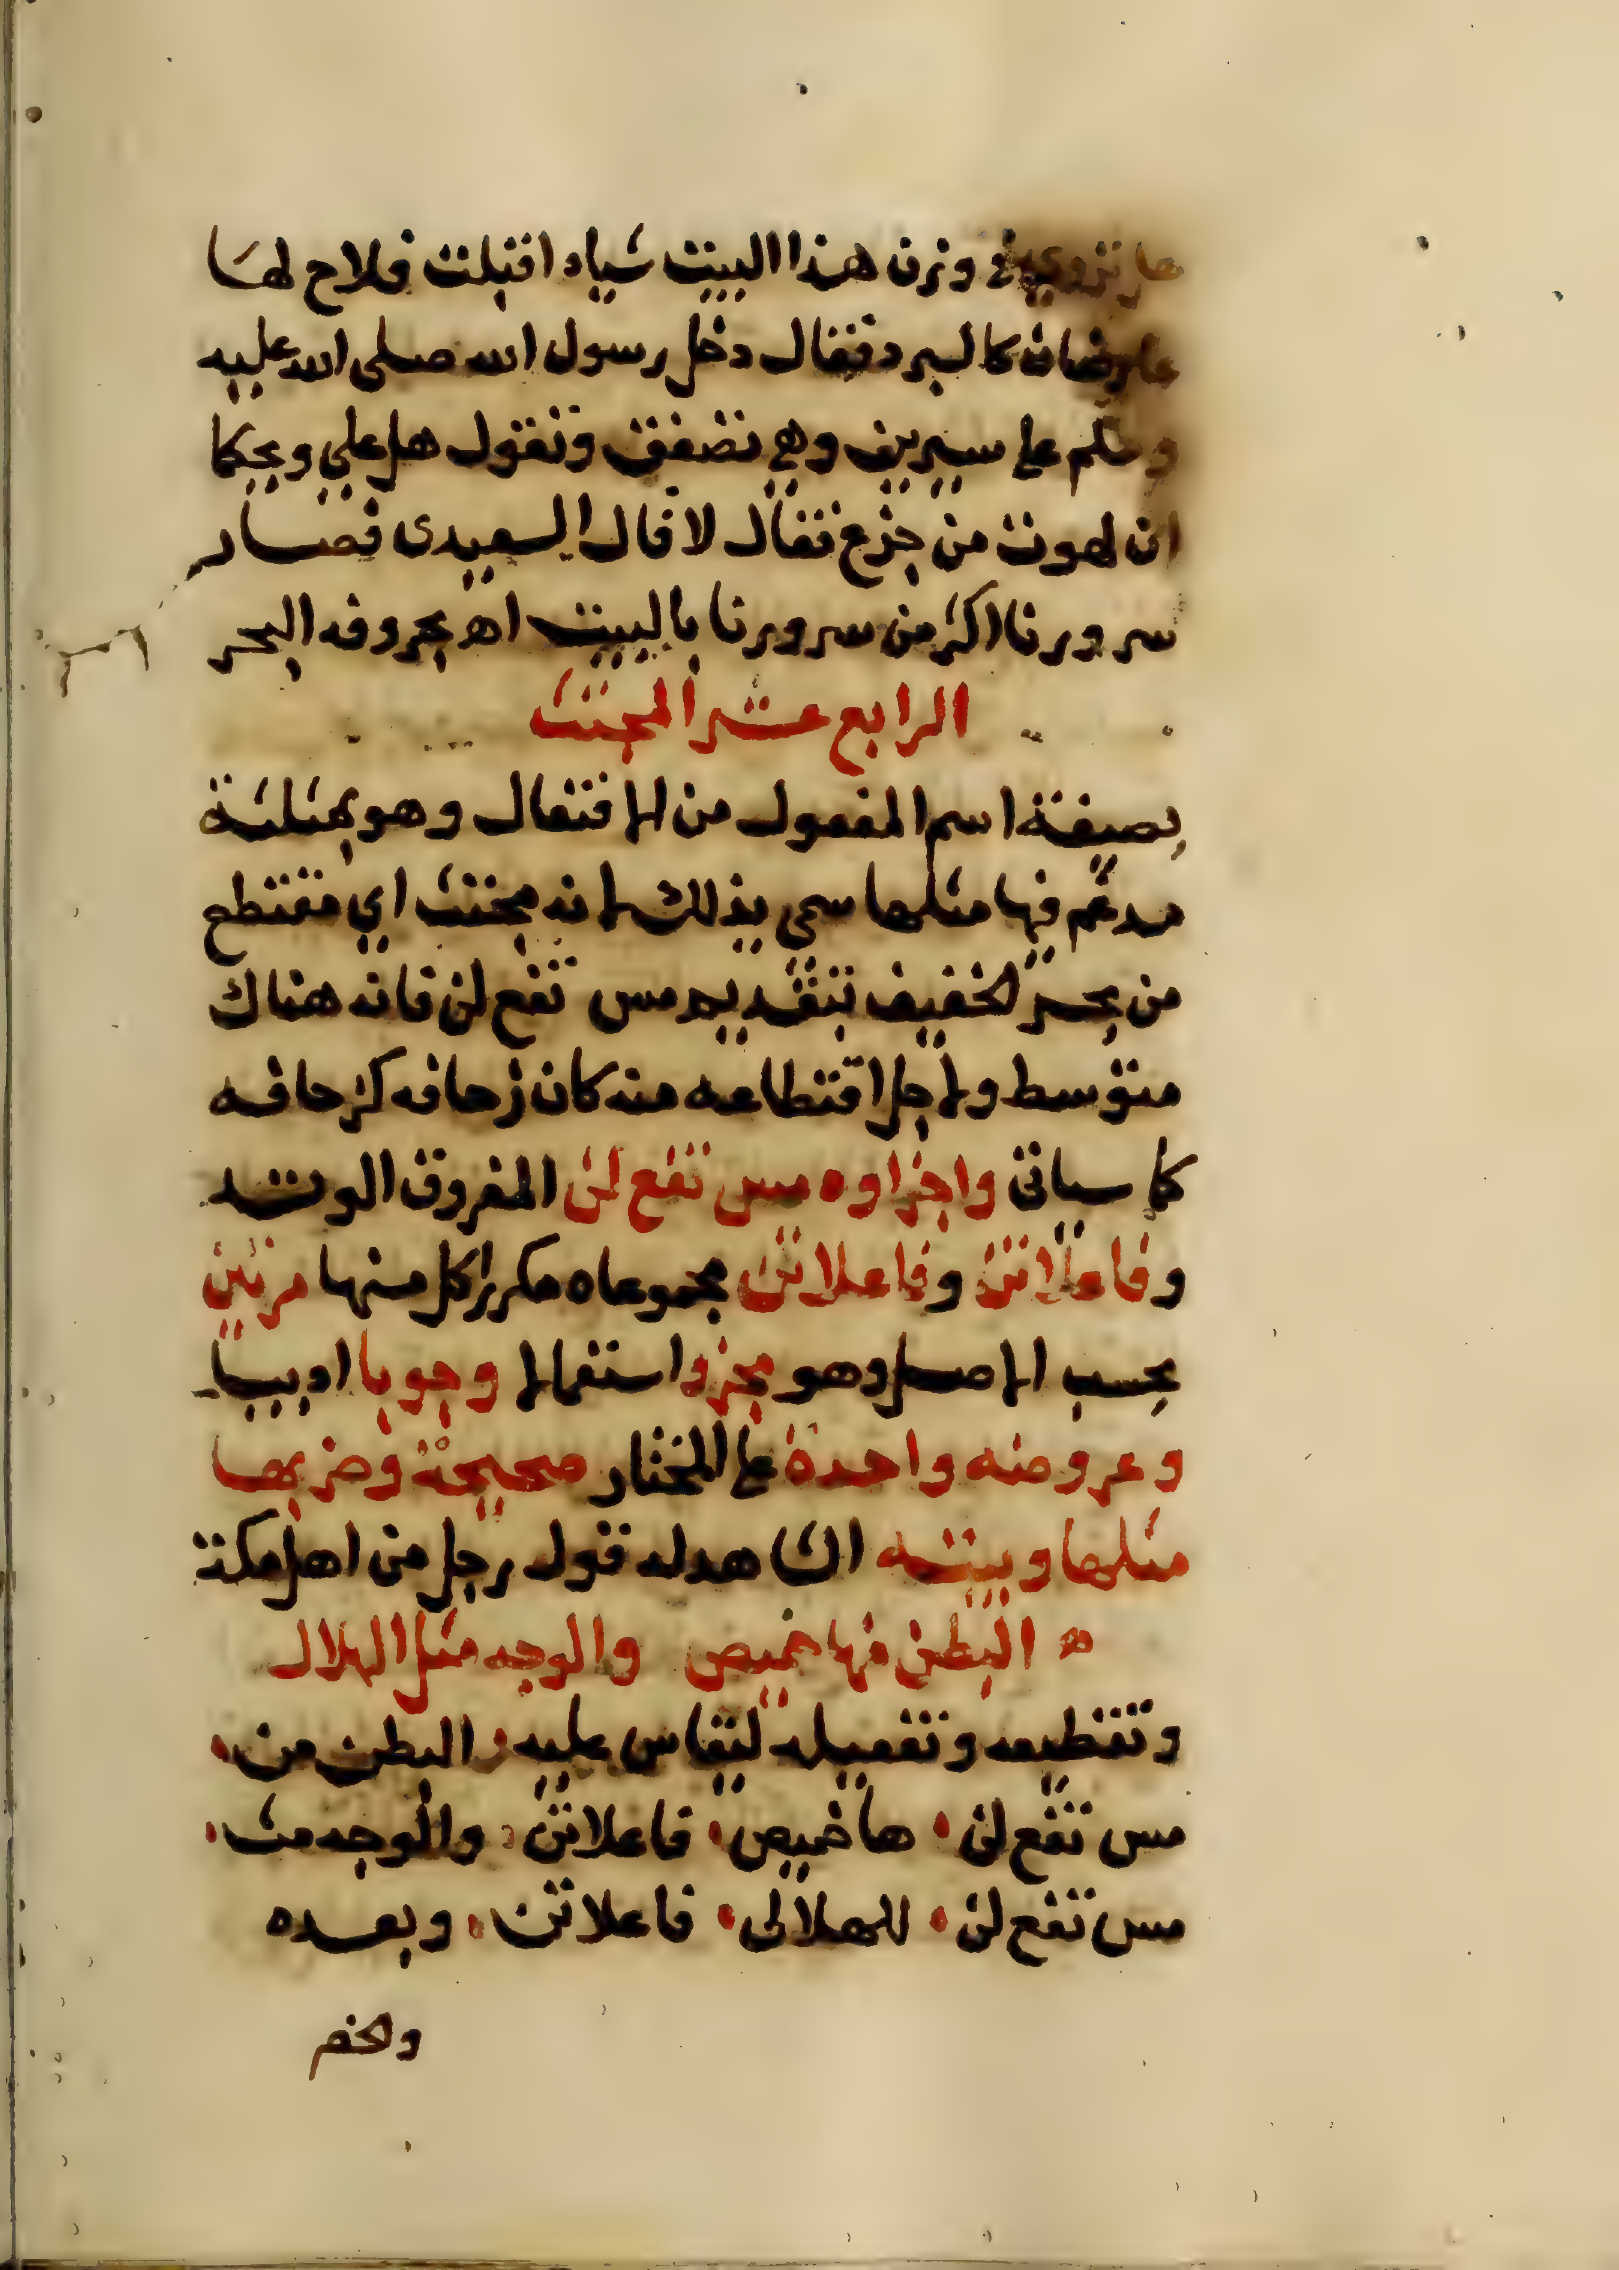 ما تروي في وزن هذا البيت شياء اقبلت فلاح لها
عارضان كالبرد فقال دخل رسول الله صلى الله عليه
وسلم على سيرين وهي تصفق وتقول هل علي ويحكما
ان لهوت من حرج فقال لا قال السعيدى فصار
سرورنا اكثر من سرورنا بالبيت اه بحروفه البحر
الرابع عشر المجتث
بصيغة اسم المفعول من الافتعال وهو بمثلثة
مدغم فيها مثلها سمي بذلك لانه مجتث اي مقتطع
من بحر الخفيف بتقديم مس تفع لن فانه هناك
متوسط ولاجل اقتطاعه منه كان زحافه كزحافه
كما سياتى واجزاوه مس تفع لن المفروق الوتد
وفاعلاتن وفاعلاتن مجموعاه مكررا كل منها مرتين
بحسب الاصل وهو مجزو استعمالا وجوبا ادبيا
وعروضه واحدة على المختار صحيحة وضربها
مثلها وبيته الشاهد له قول رجل من اهل مكة
ه البطن منها خميص والوجه مثل الهلال
وتقطيعه وتفعيله ليقاس عليه البطن من
مس تفع لن ها خميص فاعلاتن والوجه مث
مس تفع لن للهلالى فاعلاتن وبعده